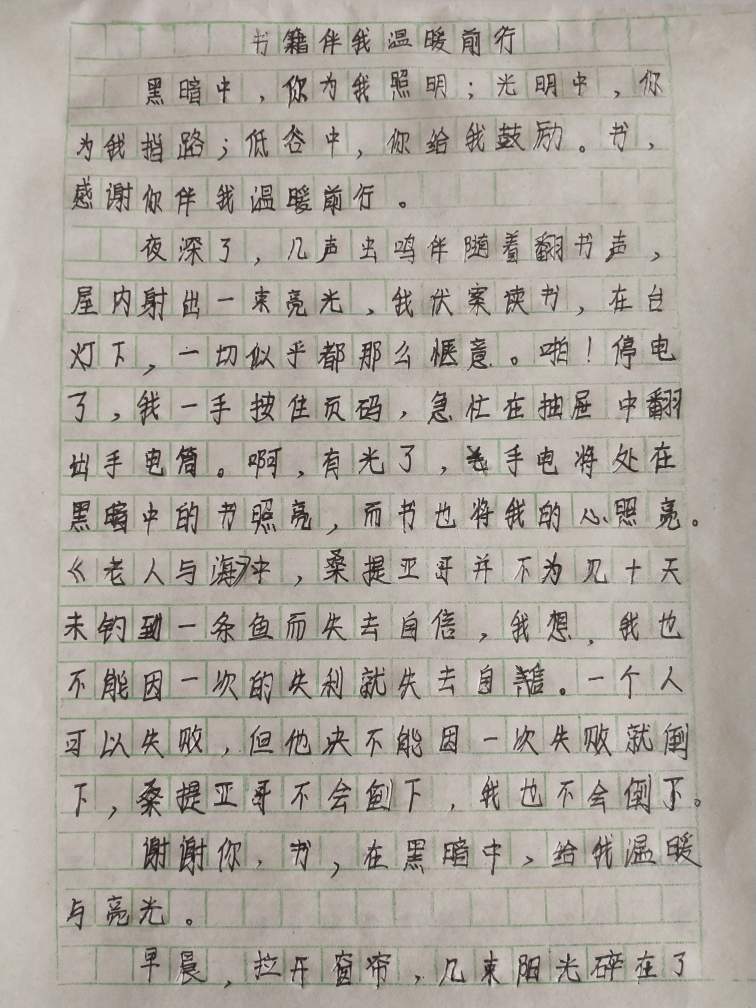 书籍伴我温暖前行
黑暗中，你为我照明；光明中，你
为我挡路；低谷中，你给我鼓励。书，
感谢你伴我温暖前行。
夜深了，几声虫鸣伴随着翻书声，
屋内射出一束亮光，我伏案读书，在台
灯下，一切似乎都那么惬意。啪！停电
了，我一手按住页码，急忙在抽屉中翻
出手电筒。啊，有光了，手电将处在
黑暗中的书照亮，而书也将我的心照亮。
《老人与海》中，桑提亚哥并不为几十天
未钓到一条鱼而失去自信，我想，我也
不能因一次的失利就失去自信。一个人
可以失败，但他决不能因一次失败就倒
下，桑提亚哥不会倒下，我也不会倒下。
谢谢你，书，在黑暗中，给我温暖
与亮光。
早晨，拉开窗帘，几束阳光碎在了